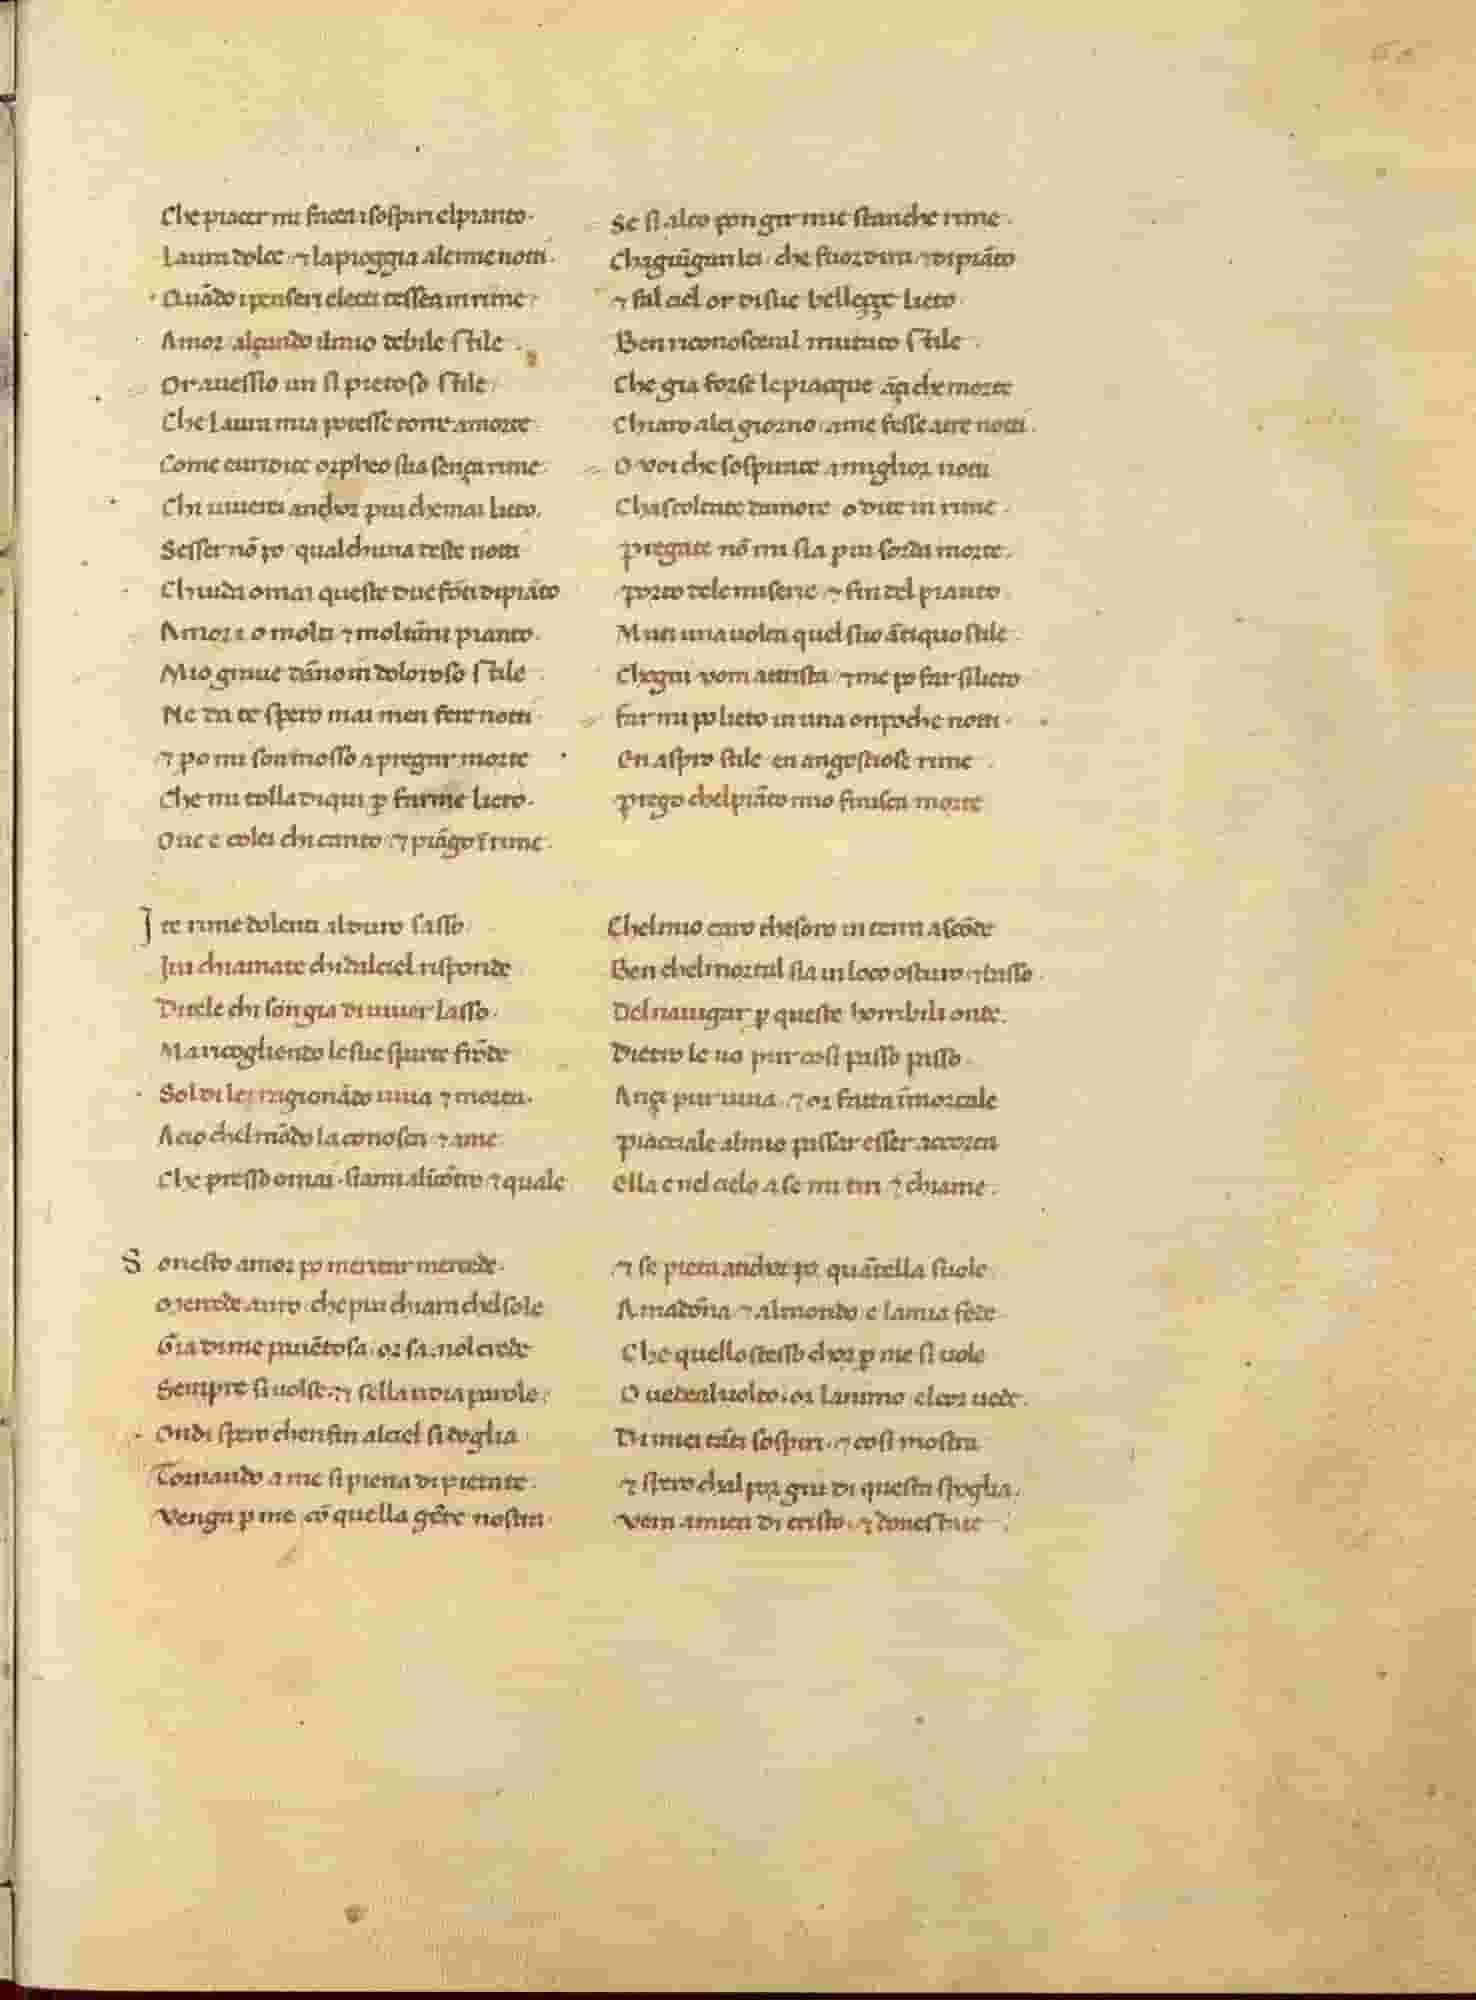 Che piacer mi facea i sospiri elpianto.
Laura dolce ⁊ lapioggia alemie notti.
Quādo i penseri electi tessea in rime.
Amor alçando ilmio debile stile.
Or auessio un si pietoso stile.
Che Laura mia potesse torre a morte.
Come euridice orpheo sua sença rime.
Chi uiuerei anchor piu chemai lieto.
Sesser nō po qualchuna deste notti
Chiuda omai queste due fōti dipiāto
Amor i o molti ⁊ moltāni pianto.
Mio graue dāno in doloroso stile.
Ne da te spero mai men fere notti.
⁊ po mi son mosso a pregar morte
Che mi tolla diqui p farme lieto.
Oue e colei chi canto ⁊ piāgo ī rime.
Se si alto pon gir mie stanche rime.
Chagiūgan lei che fuor dira ⁊ di piāto
⁊ fal ciel or disue belleççe lieto.
Ben riconosceral mutato stile.
Che gia forse lepiacque āçi che morte
Chiaro alei giorno. ame fesse atre notti.
O voi che sospirate a miglior notti
Chascoltate damore o dite in rime.
pregate nō mi sia piu sorda morte.
porto dele miserie ⁊ fin del pianto.
Muti una uolta quel suo ātiquo stile.
Chogni vom attrista ⁊ me po far silieto
far mi po lieto in una on poche notti.
En aspro stile en angosciose rime.
prego chelpiāto mio finisca morte
Ite rime dolenti alduro sasso
Chelmio caro thesoro in terra ascōde
Iui chiamate chi dalciel risponde
Ben chelmortal sia in loco oscuro ⁊ basso.
Ditele chi son gia diuiuer lasso.
Delnauigar p queste horribili onde.
Ma ricogliendo lesue sparte frōde
Dietro le uo pur cosi passo passo.
Sol di lei ragionādo uiua ⁊ morta.
Ançi pur uiua. ⁊ or fatta īmortale
Acio chelmōdo la conosca ⁊ ame
piacciale almio passar esser accorta
Che presso omai. siami alīcōtro ⁊ quale
Ella e nel cielo a se mi tiri ⁊ chiame.
Sonesto amor po meritar mercede.
⁊ se pieta anchor po quātella suole
Mercede auro. che piu chiara chelsole
A madōna ⁊ almondo e lamia fede.
Gia dime pauētosa. or sa. nol crede
Che quello stesso chor p me si uole
Sempre si uolse. ⁊ sella udia parole.
O uedeal uolto. or lanimo elcor uede.
Ondi spero chenfin alciel si doglia
Di miei tāti sospiri. ⁊ cosi mostra
Tornando a me si piena di pietate.
⁊ spero chal por giu di questa spoglia.
Venga p me cō quella gēte nostra
Vera amica di cristo. ⁊ donestate.